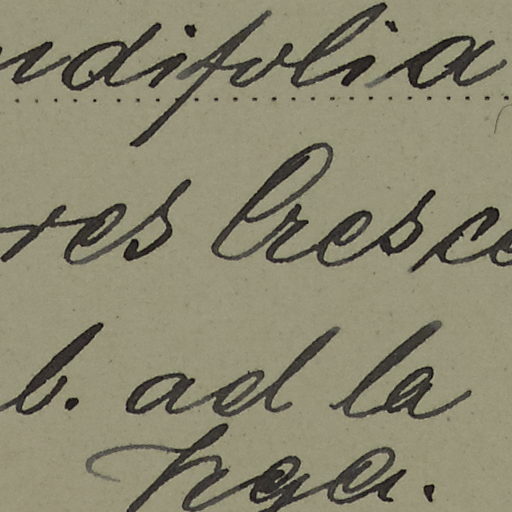 ndifolia
res Cresce
b. ad la